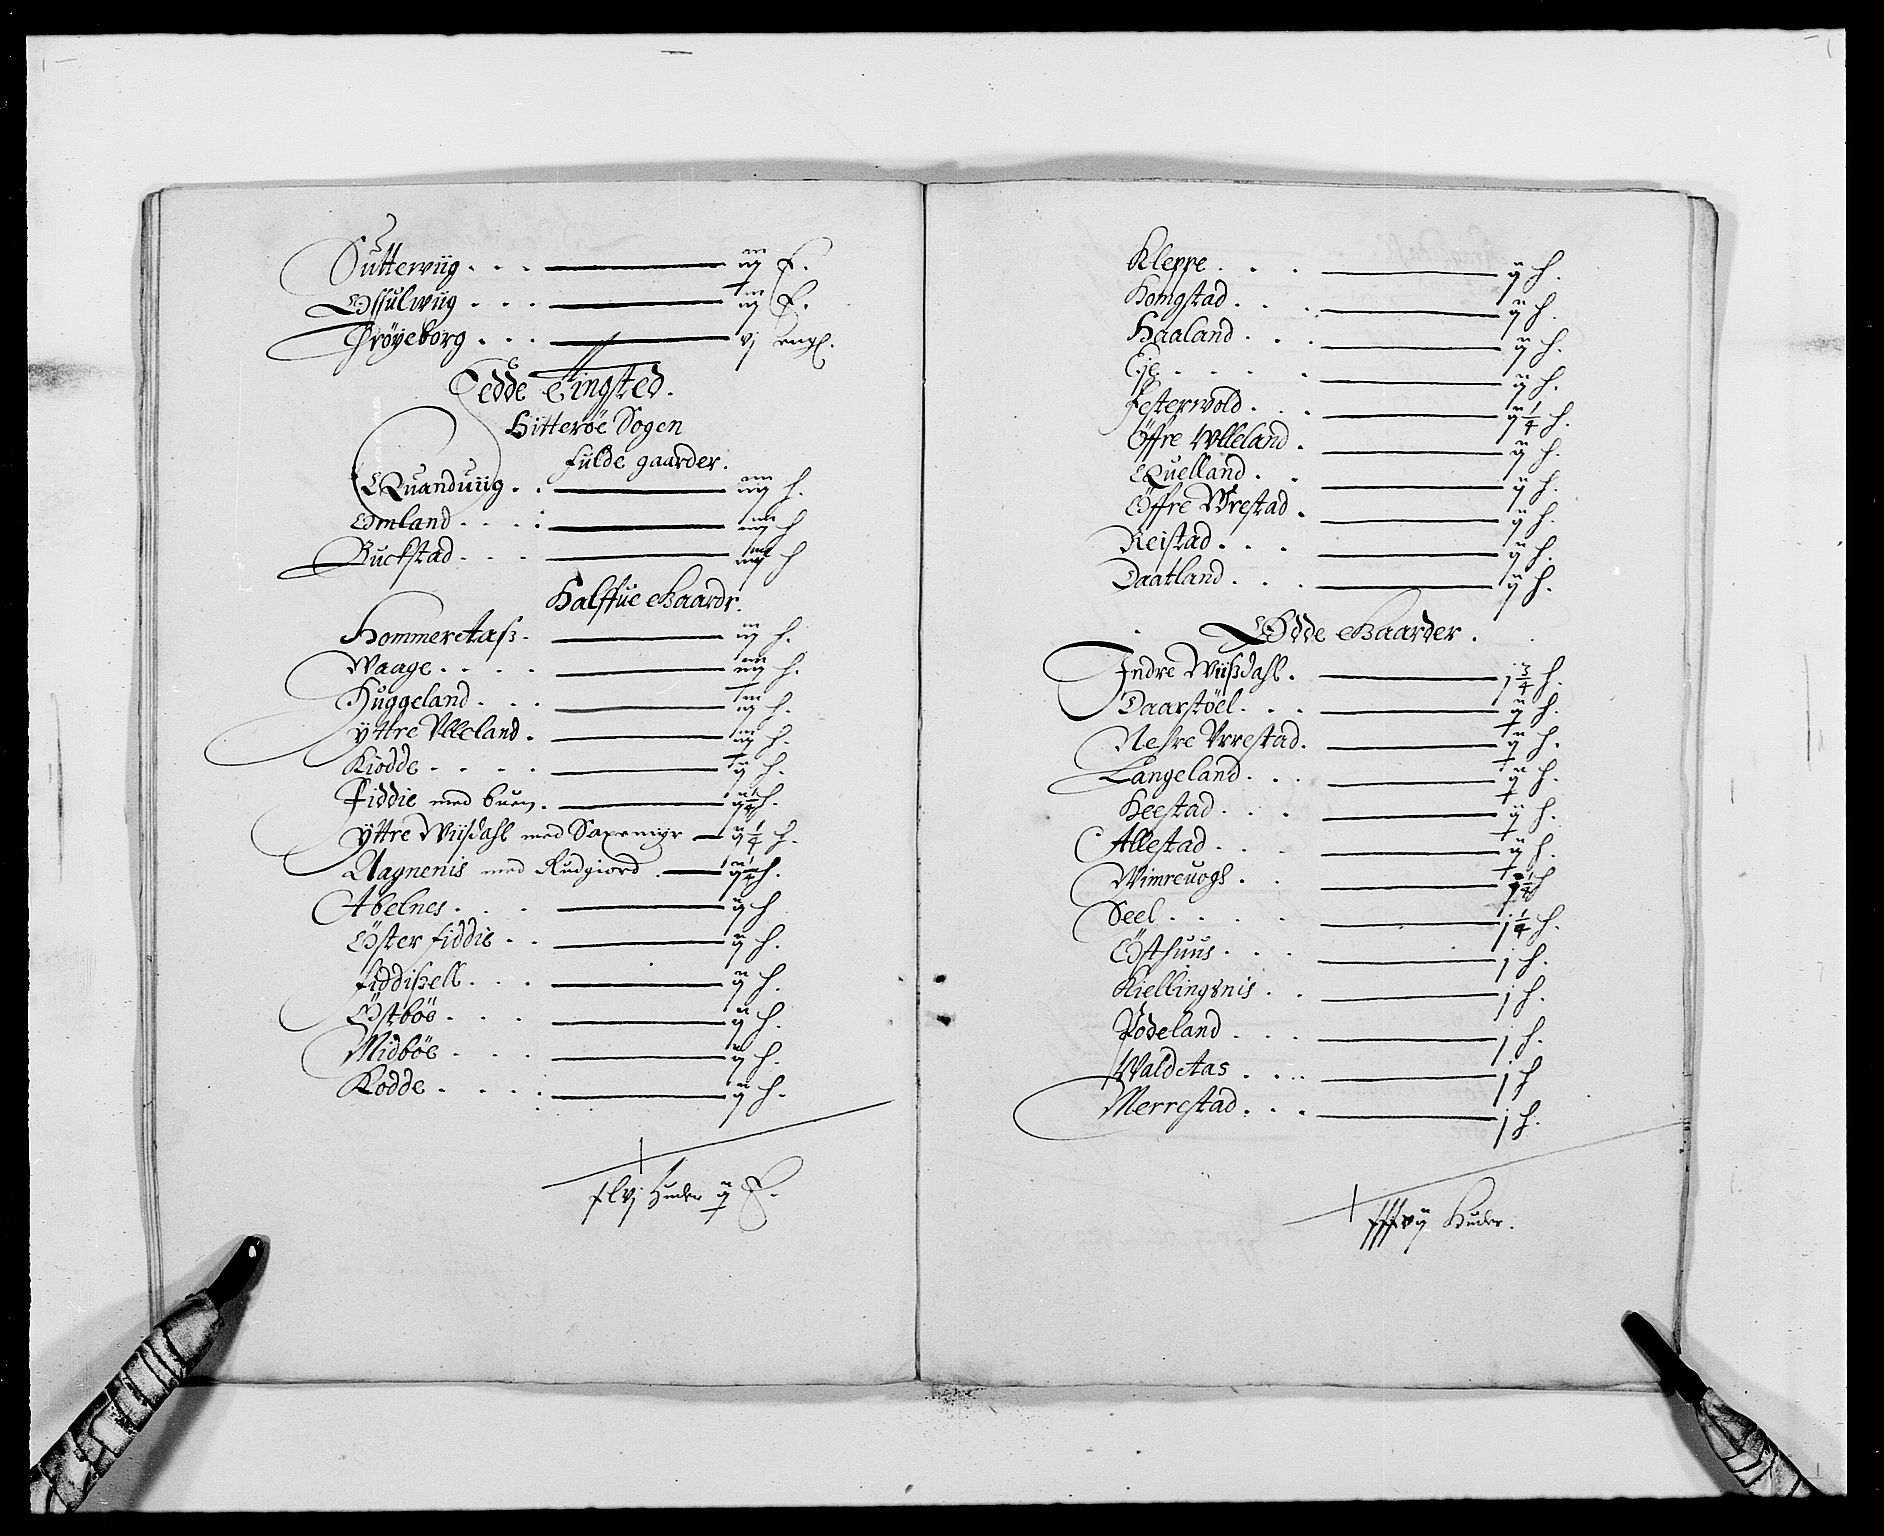 Suttewiig . . . iij E.
Ossulwiig . . . iij E.
Trøyeborg . . . vj
Fedde Tingsted.
Hitterøe Sogen
fulde gaarder.
Quanduiig . . iiij h.
Omland . . . . iiij h
Buckstad . . . iiij h
Halffue Gaardr.
Hommeraas . iij h.
Waage . . . . iiij h.
Huggeland . . . iij h.
yttre Ulleland . iij h.
Kiodde . . . . ij h.
Fiddie med buen . ij 1/4 h.
yttre Wiisdahl med ij 1/4 h.
Aagnenis med Rudgiord . ij 1/4 h.
Abelnes . . . ij h
Öster fiddie . . ij h.
fiddisell . . . ij h.
Östböe . . . ij h.
Midböe . . . ij h.
Kodde . . . . ij h.
xlvj Huder ij E.
Kleppe . . . ij h.
Komgstad . . . ij h.
Haaland . . . ij h.
Eje . . . . ij h.
festerwold . . . ij 1/4 h.
Öffre Ulleland . ij h.
Quelland . . ij h.
Öffre Wrestad . ij h.
Reistad . . . ij h.
Daatland . . . ij h.
Ödde Gaarder .
Indre Wiisdahl . j 3/4 h.
Daarstöel . . . ij h.
Nesre Urrestad . ij h.
Langeland . . . ij h.
Heestad . . . ij h.
Allestad . . . ij h.
Wimreuogh . . 1/4 h
Seel . . . . j 1/4 h.
Östhuus . . . j h.
Kiellingsnis . . j h.
Podeland . . . j h.
Waldetas . . . j h
Merrestad . . . j h.
xxxvij Huder.